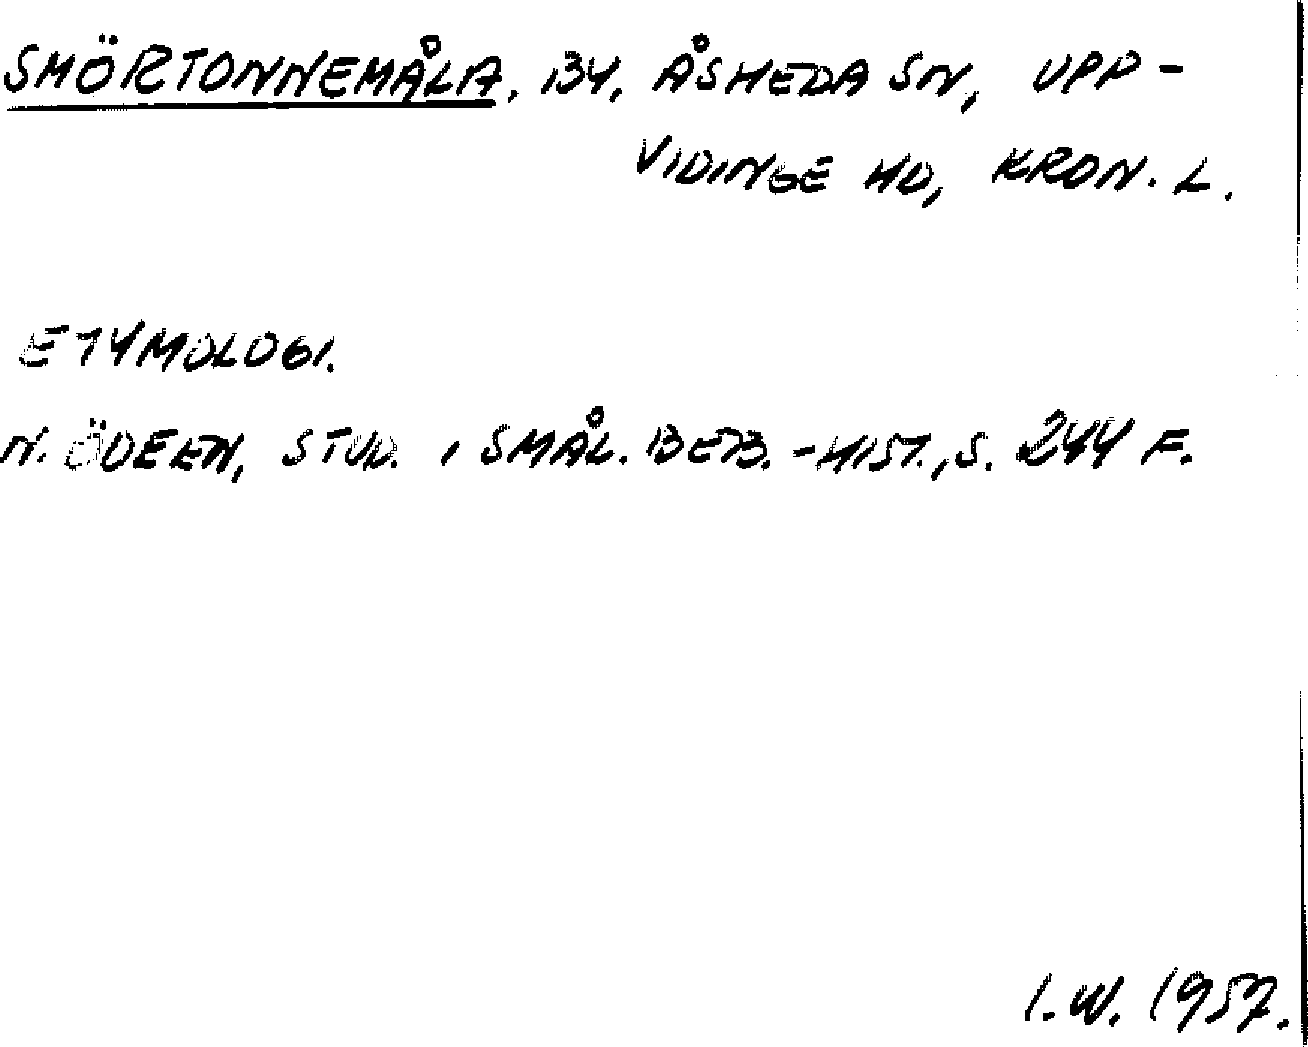 SMÖRTONNEMÅLA, BY, ÅSHEDA SN, UPP-
VIDINGE HD, KRON. L.
ETYMOLOGI.
N. ÖDEEN, STUD. I SMÅL. BEB.-HIST., S. 244 F.
I. W. 1957.